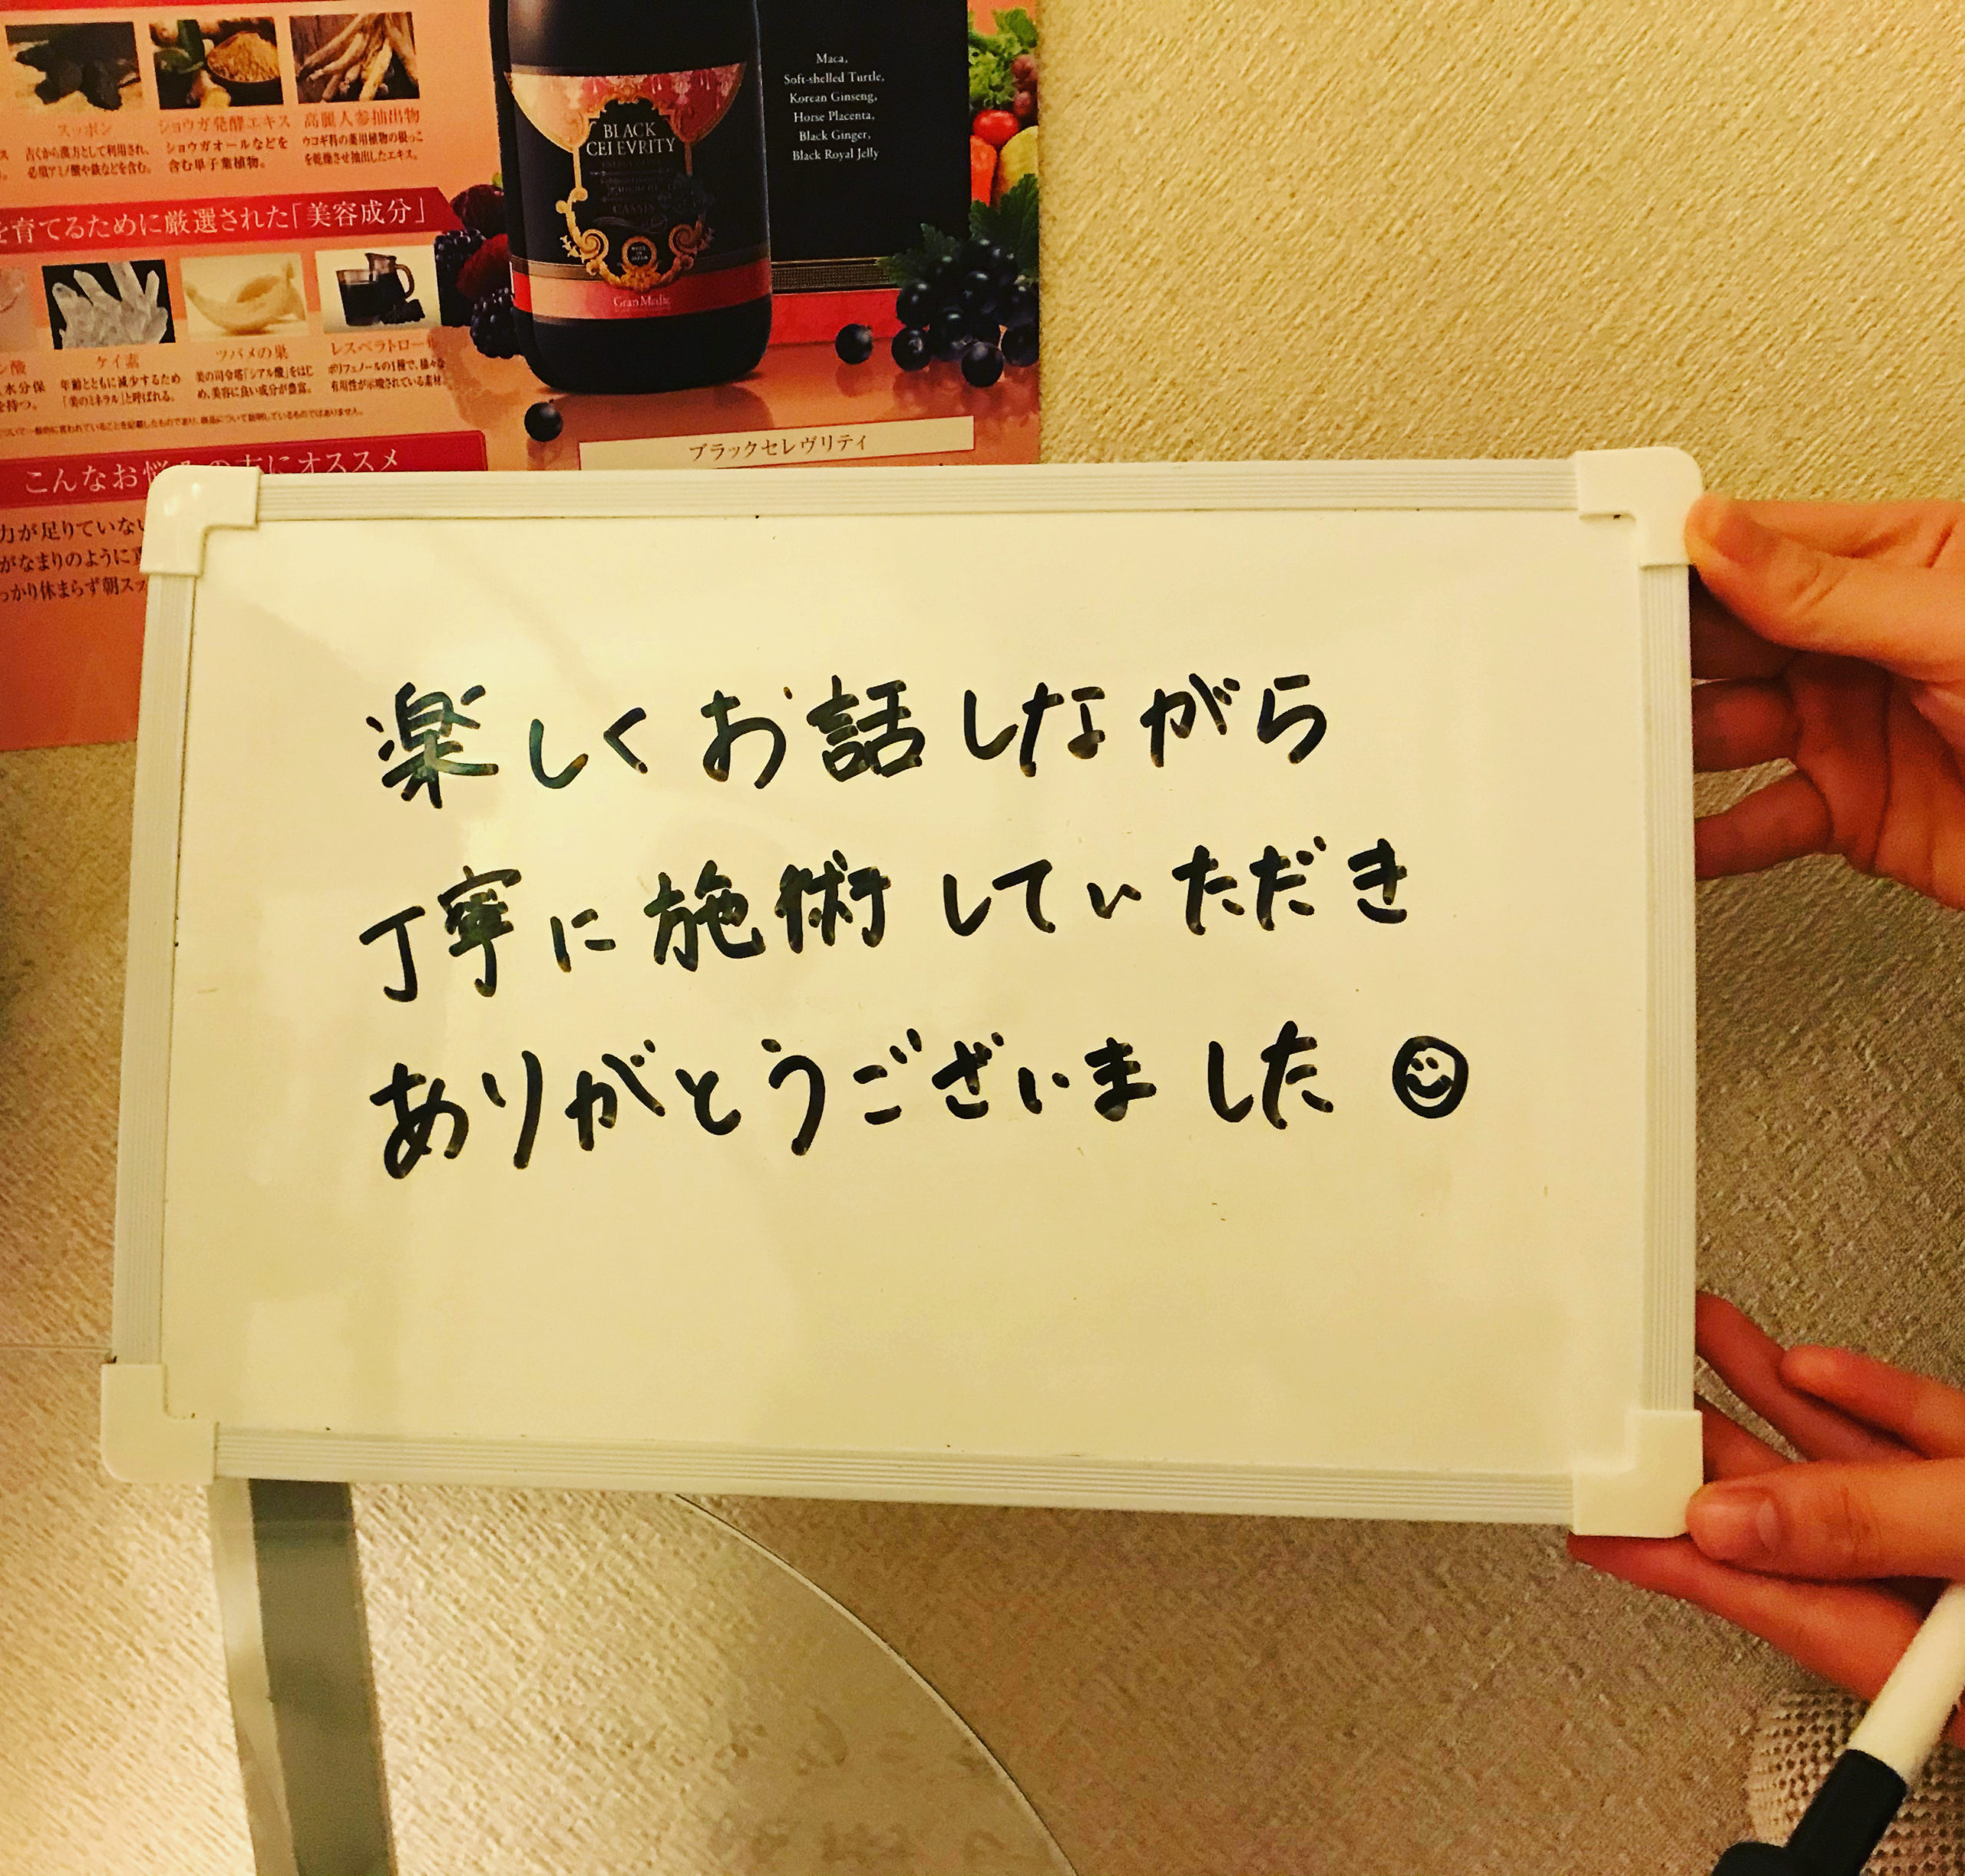 スッポン
古くから漢方として利用され、
必須アミノ酸や鉄などを含む。
ショウガ発酵エキス
ショウガオールなどを
含む単子葉植物。
高麗人参抽出物
ウコギ科の薬用植物の根っこ
を乾燥させ抽出したエキス。
を育てるために厳選された「美容成分」
ケイ素
年齢とともに減少するため
「美のミネラル」と呼ばれる。
ツバメの巣
美の司令塔「シアル酸」をはじ
め、美容に良い成分が豊富。
レスベラトロール
ポリフェノールの1種で、様々な
有用性が示唆されている素材。
水分保
を持つ。
こんなお悩みの方にオススメ
力が足りていない
がなまりのように
っかり休まらず朝スッ
BLACK
CELEVRITY
CASSIS
MADE IN JAPAN
GranMedic
Maca,
Soft-shelled Turtle,
Korean Ginseng,
Horse Placenta,
Black Ginger,
Black Royal Jelly
ブラックセレヴリティ
楽しくお話しながら
丁寧に施術していただき
ありがとうございました☺